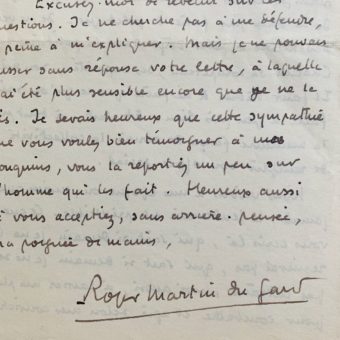 Excusez-moi de revenir sur ces
uestions. Je ne cherche pas à me défendre,
peine à m'expliquer. Mais je ne pouvais
isser sans réponse votre lettre, à laquelle
'ai été plus sensible encore que je ne le
is. Je serais heureux que cette sympathie
ue vous voulez bien témoigner à mes
ouquins, vous la reportiez un peu sur
'homme qui les fait. Heureux aussi
i vous acceptiez, sans arrière-pensée,
a poignée de mains,
Roger Martin du Gard